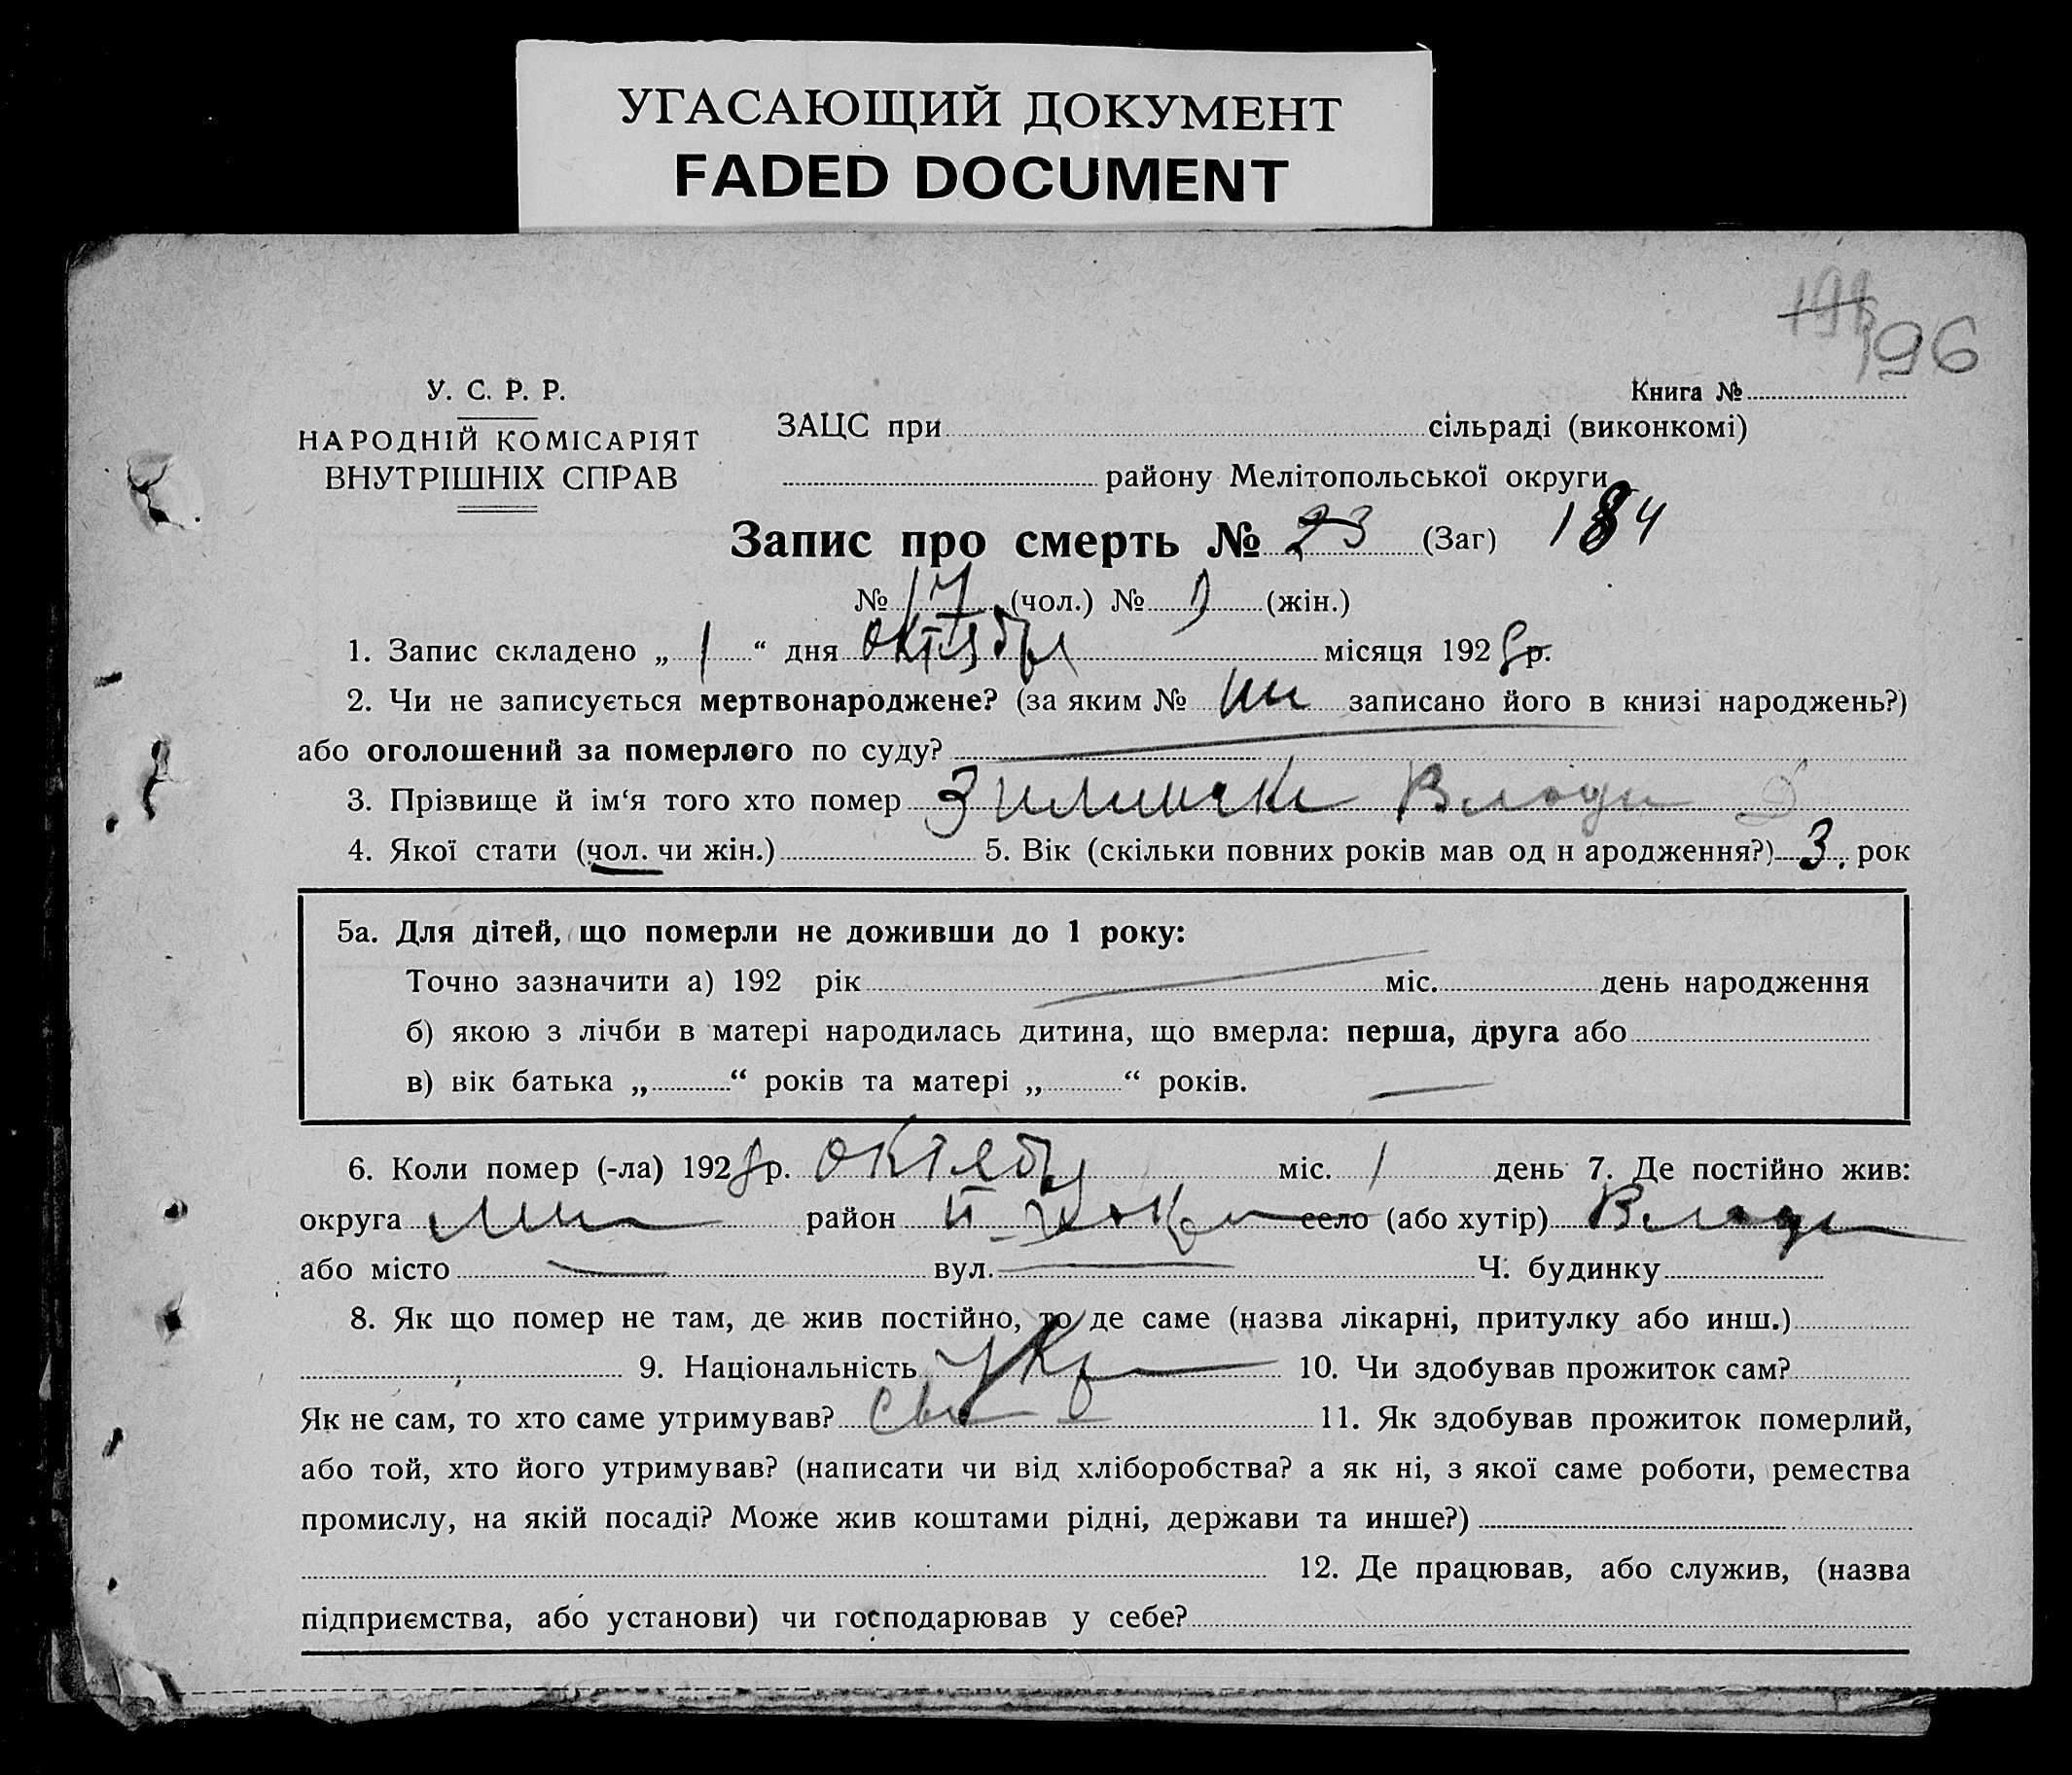 УГАСАЮЩИЙ ДОКУМЕНТ
FADED DOCUMENT
196
У. С. Р. Р.
Книга №
НАРОДНІЙ КОМІСАРІЯТ
ВНУТРІШНІХ СПРАВ
ЗАЦС при сільраді (виконкомі)
району Мелітопольської округи
Запис про смерть № 23 (Заг) 184
№ 17 (чол.) № (жін.)
1. Запис складено „ 1 “ дня октября місяця 1928 р.
2. Чи не записується мертвонароджене? (за яким № записано його в книзі народжень?)
або оголошений за померлого по суду?
3. Прізвище й ім‘я того хто помер
4. Якої стати (чол. чи жін.) 5. Вік (скільки повних років мав од н ародження?) 3 рок
5а. Для дітей, що померли не доживши до 1 року:
Точно зазначити а) 192 рік міс. день народження
б) якою з лічби в матері народилась дитина, що вмерла: перша, друга або
в) вік батька „ “ років та матері „ “ років.
6. Коли помер (-ла) 1928 р. октябр міс. 1 день 7. Де постійно жив:
округа район село (або хутір)
або місто вул. Ч. будинку
8. Як що помер не там, де жив постійно, то де саме (назва лікарні, притулку або инш.)
9. Національність Укр 10. Чи здобував прожиток сам?
Як не сам, то хто саме утримував? 11. Як здобував прожиток померлий,
або той, хто його утримував? (написати чи від хліборобства? а як ні, з якої саме роботи, ремества
промислу, на якій посаді? Може жив коштами рідні, держави та инше?)
12. Де працював, або служив, (назва
підприємства, або установи) чи господарював у себе?